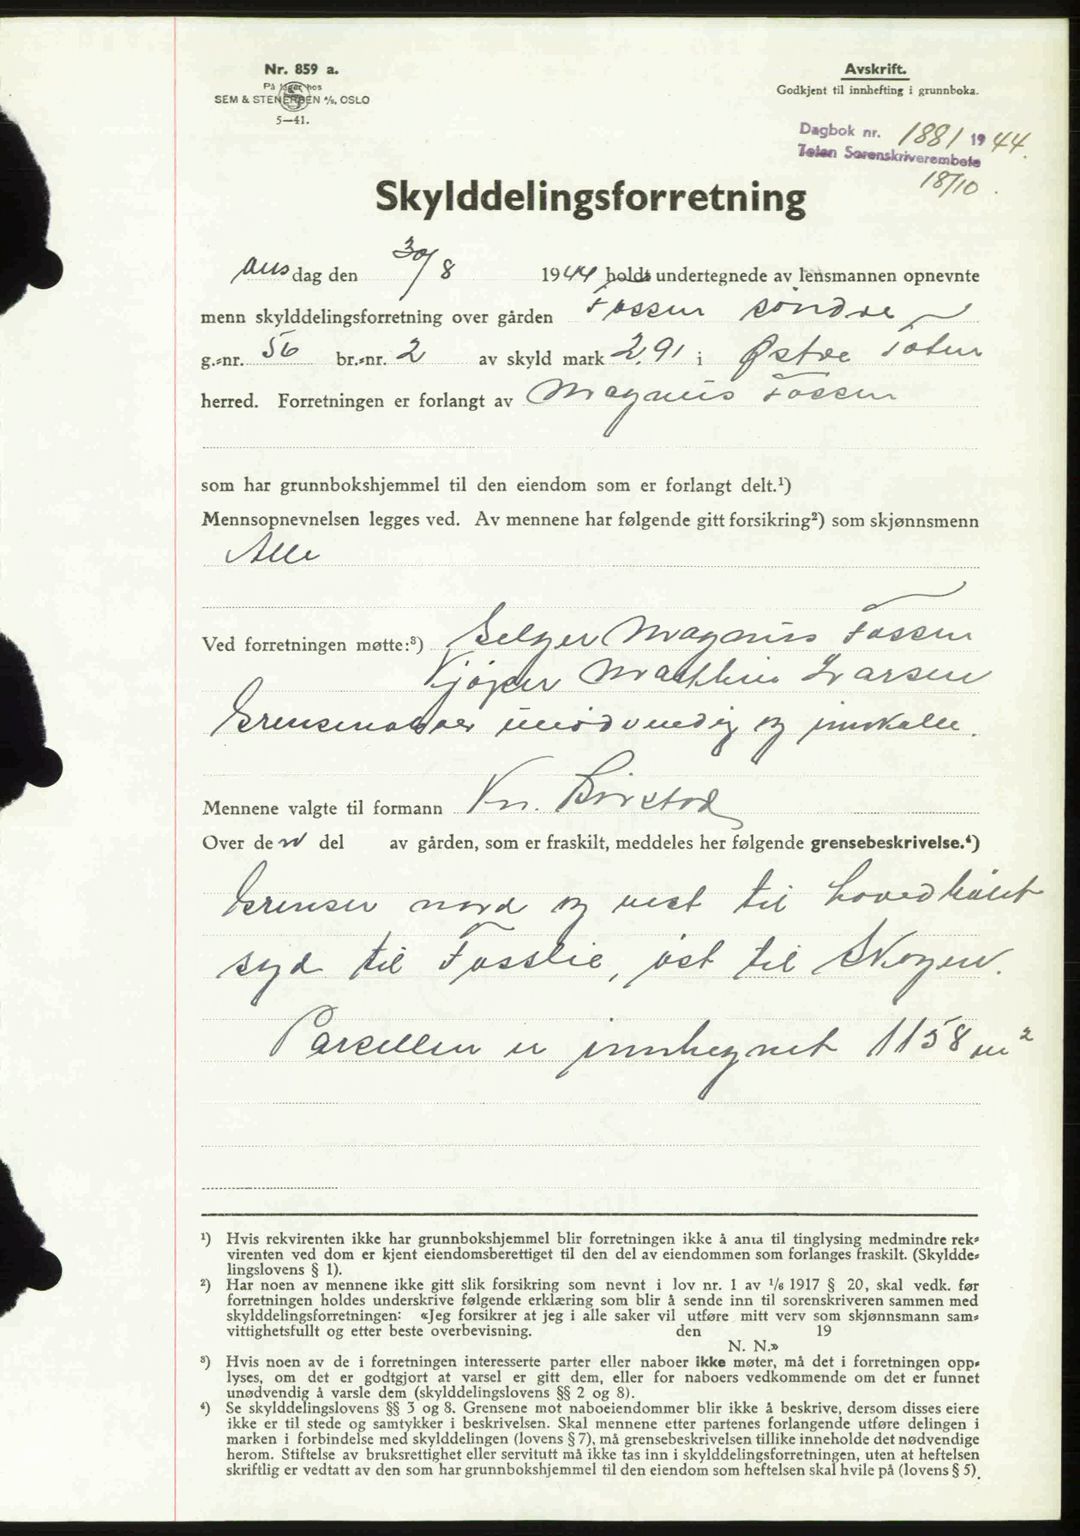 Nr. 859 a.
På lager hos
SEM & STENERSEN A/S, OSLO
5—41.
Avskrift.
Godkjent til innhefting i grunnboka.
Dagbok nr. 1881 1944.
Toten Sorenskriverembete
18/10.
Skylddelingsforretning
Ons dag den 30/8 1944 holdt undertegnede av lensmannen opnevnte
menn skylddelingsforretning over gården Fossen söndre
g.-nr. 56 br.-nr. 2 av skyld mark 2.91 i Østre Toten
herred. Forretningen er forlangt av Magnus Fossen
som har grunnbokshjemmel til den eiendom som er forlangt delt.¹)
Mennsopnevnelsen legges ved. Av mennene har følgende gitt forsikring²) som skjønnsmenn
Alle
Ved forretningen møtte:³) Selger Magnus Fossen
Kjöper Mathias Larsen
Grensenaboer unödvendig og innkalle.
Mennene valgte til formann Kr. Börstad
Over den del av gården, som er fraskilt, meddeles her følgende grensebeskrivelse.⁴)
Grenser nord og vest til hovedbölet
syd til Fosslie, öst til Skogen.
Parsellen er innhegnet 1158 m²
¹) Hvis rekvirenten ikke har grunnbokshjemmel blir forretningen ikke å anta til tinglysing medmindre rek-
virenten ved dom er kjent eiendomsberettiget til den del av eiendommen som forlanges fraskilt. (Skyldde-
lingslovens § 1).
²) Har noen av mennene ikke gitt slik forsikring som nevnt i lov nr. 1 av 1/6 1917 § 20, skal vedk. før
forretningen holdes underskrive følgende erklæring som blir å sende inn til sorenskriveren sammen med
skylddelingsforretningen: «Jeg forsikrer at jeg i alle saker vil utføre mitt verv som skjønnsmann sam-
vittighetsfullt og etter beste overbevisning. den 19
N. N.»
³) Hvis noen av de i forretningen interesserte parter eller naboer ikke møter, må det i forretningen opp-
lyses, om det er godtgjort at varsel er gitt dem, eller for naboers vedkommende om det er funnet
unødvendig å varsle dem (skylddelingslovens §§ 2 og 8).
⁴) Se skylddelingslovens §§ 3 og 8. Grensene mot naboeiendommer blir ikke å beskrive, dersom disses eiere
ikke er til stede og samtykker i beskrivelsen. Skal mennene etter partenes forlangende utføre delingen i
marken i forbindelse med skylddelingen (lovens § 7), må grensebeskrivelsen tillike inneholde det nødvendige
herom. Stiftelse av bruksrettighet eller servitutt må ikke tas inn i skylddelingsforretningen, uten at heftelsen
skriftlig er vedtatt av den som har grunnbokshjemmel til den eiendom som heftelsen skal hvile på (lovens § 5).